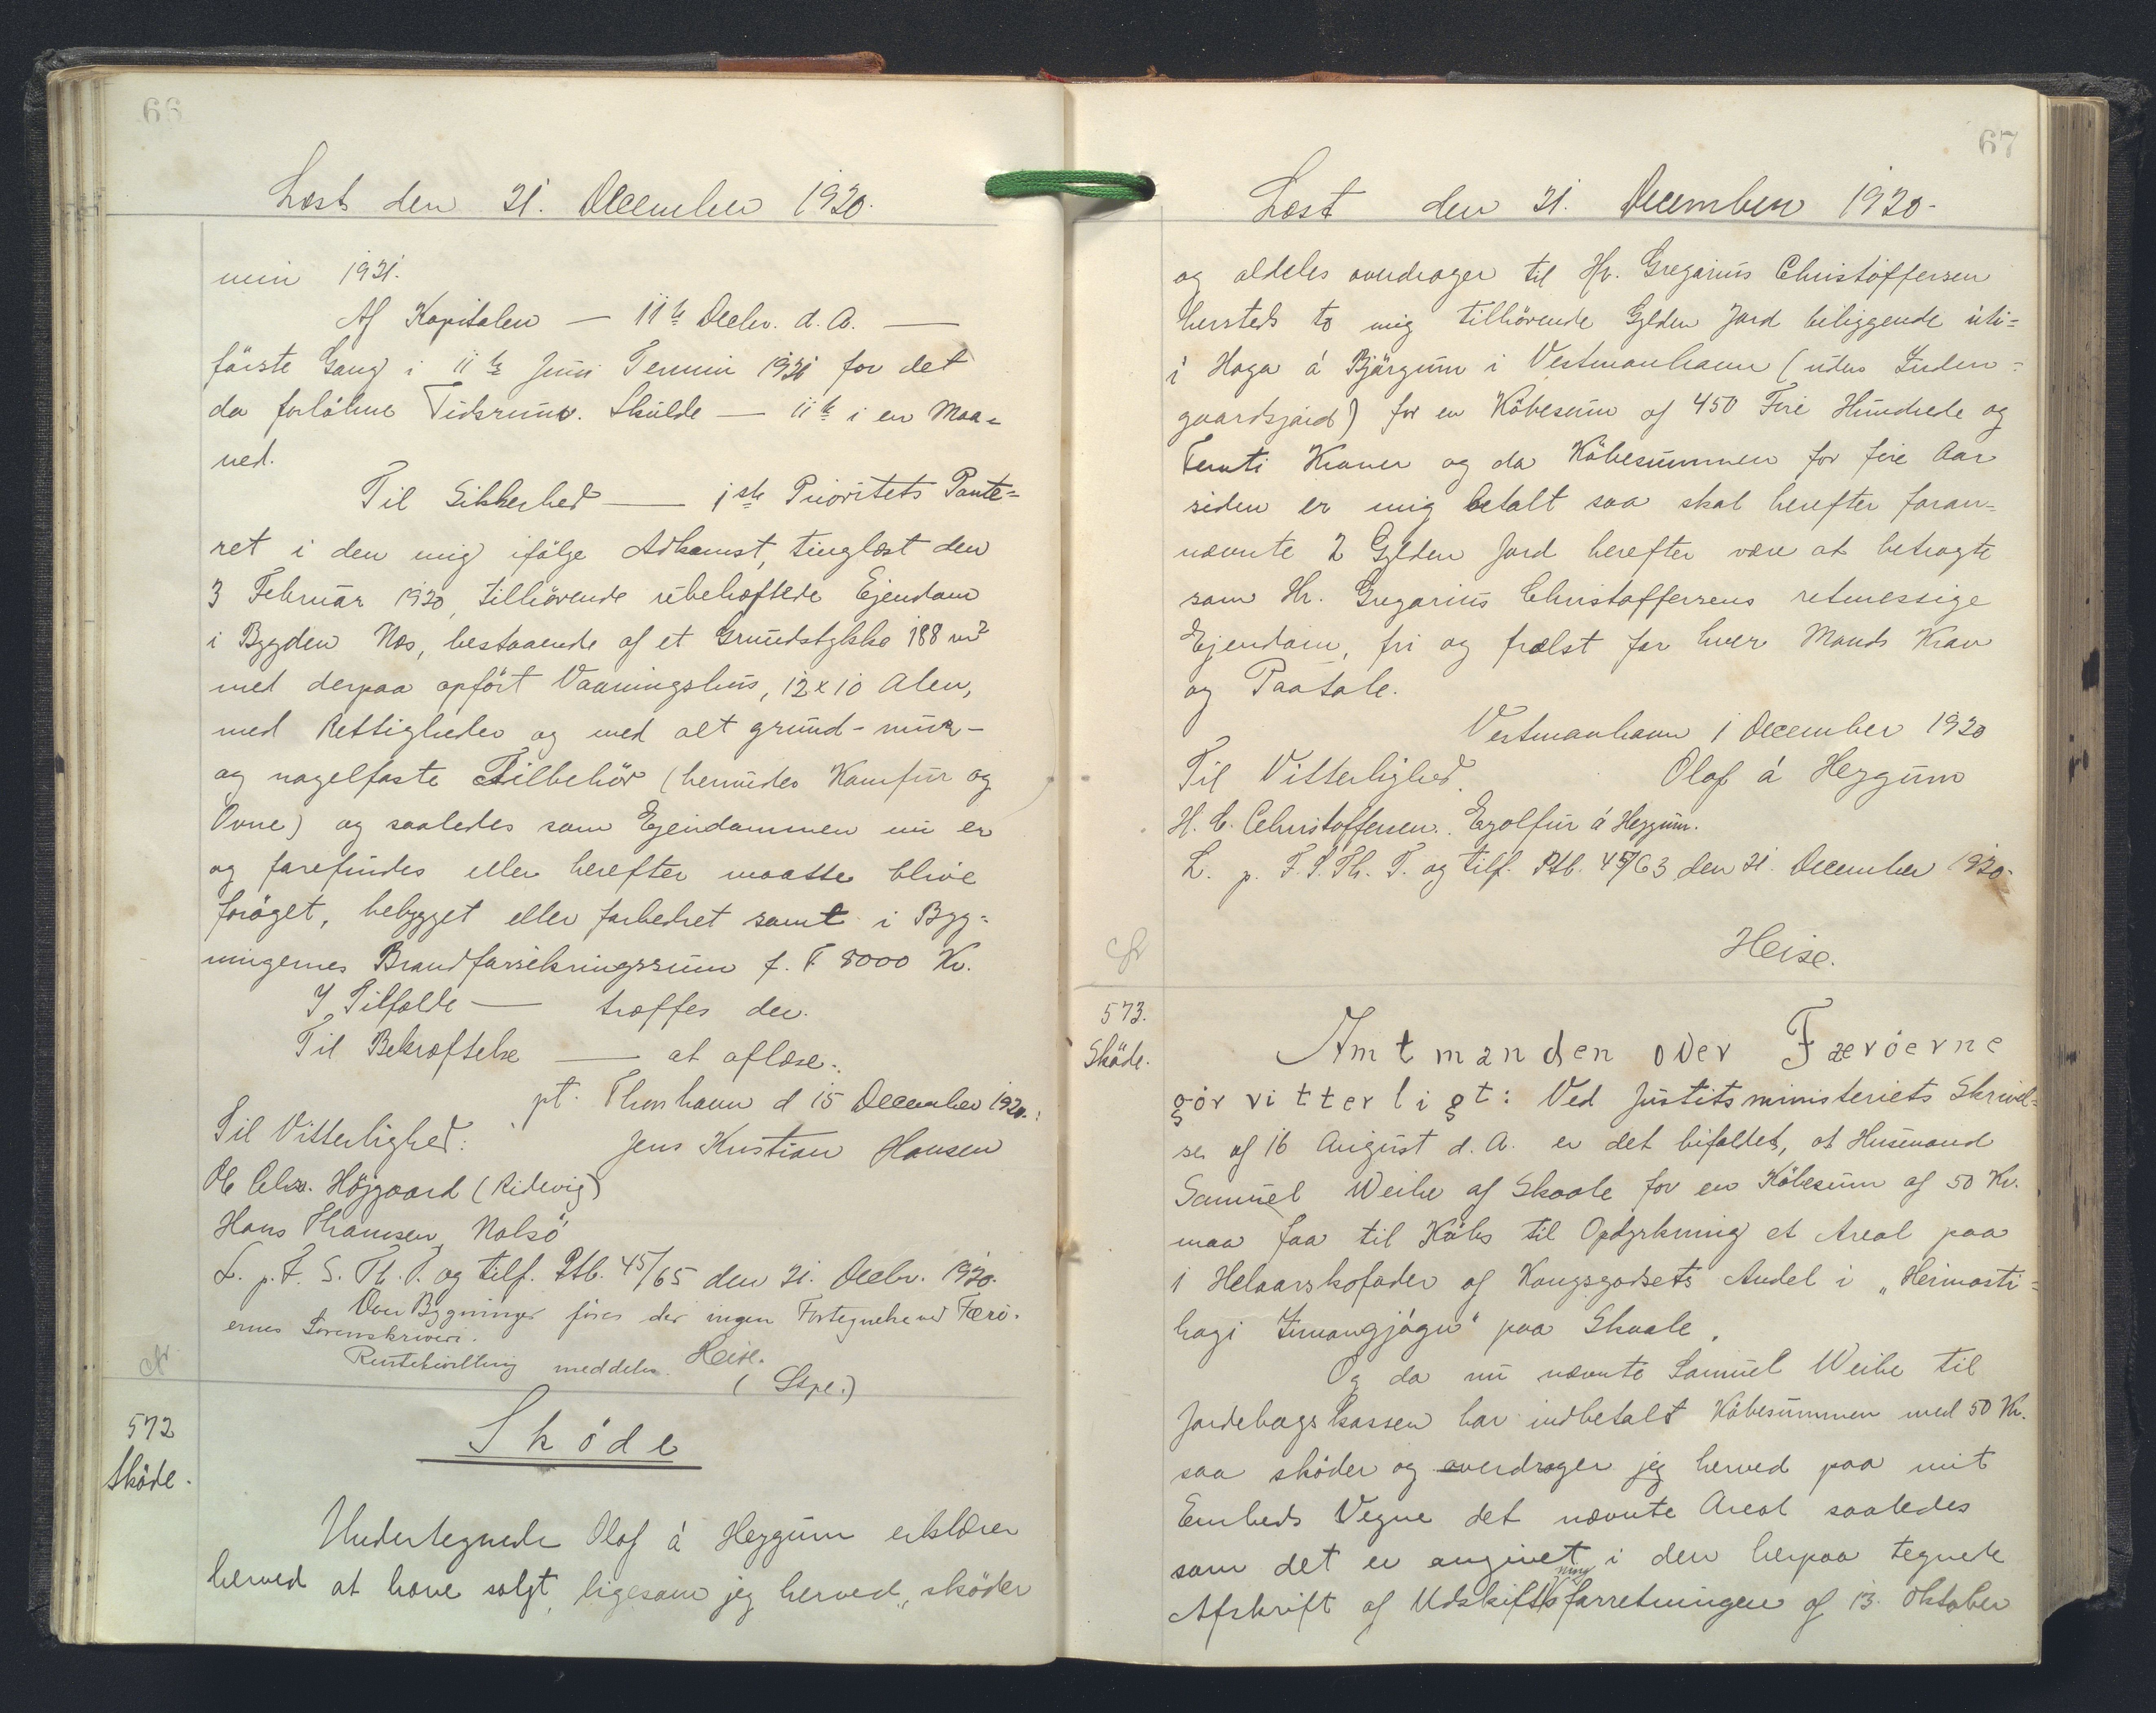 66
Læst den 21. December 1920.
min 1921.
Af Kapitalen — 11te Decbr. d. A. —
förste Gang i 11te Juni Termin 1921 for det
da forløbne Tidsrum. Skulde — 11te i en Maa=
ned.
Til Sikkerhed — 1ste Prioritets Pante=
ret i den mig ifölge Adkomst, tinglæst den
3 Februar 1920, tilhörende ubehæftede Ejendom
i Bygden Næs, bestaaende af et Grundstykke 188 m²
med derpaa opfört Vaaningshus, 12 x 10 Alen,
med Rettigheder og med alt grund- mur-
og nagelfaste Tilbehör (herunder Komfur og
Ovne) og saaledes som Ejendommen nu er
og forefindes eller herefter maatte blive
foröget, bebygget eller forbedret samt i Byg=
ningernes Brandforsikringssum f. T. 8000 Kr.
I Tilfælde — træffes der.
Til Bekræftelse — at aflæse.
pt. Thorshavn d 15 December 1920.
Til Vitterlighed: Jens Kristian Hansen
Ole Chr. Höjgaard (Ridevig)
Hans Thomsen, Nolsö
L. p. F. S. Th. T. og tilf. Ptb. 45/65 den 21. Decbr. 1920.
Over Bygninger föres der ingen Fortegnelse ved Færö-
ernes Sorenskriveri.
Heise.
Rentekvittering meddeles.
(Stpl.)
572
Sköde.
Sköde
Undertegnede Olaf á Heygum erklærer
herved at have solgt, ligesom jeg herved, sköder
67
Læst den 21. December 1920.
og aldeles overdrager til Hr. Gregorius Christoffersen
hersteds to mig tilhörende Gylden Jord beliggende uti=
i Haga á Bjørgum i Vestmanhavn (uden Inden=
gaardsjord) for en Købesum af 450 Fire Hundrede og
Femti Kroner og da Købesummen for fire Aar
siden er mig betalt saa skal herefter foran=
nævnte 2 Gylden Jord herefter være at betragte
som Hr. Gregorius Christoffersens retmessige
Ejendom, fri og frælst for hver Mands Krav
og Paatale.
Vestmanhavn 1 December 1920
Til Vitterlighed. Olaf á Heygum
H. C. Christoffersen. Eyolfur á Heygum.
L. p. F. S. Th. T. og tilf. Ptb. 45/63 den 21. December 1920.
Heise.
573.
Sköde.
Amtmanden over Færöerne
gör vitterligt: Ved Justitsministeriets Skrivel=
se af 16 August d. A. er det bifaldet, at Husmand
Samuel Weihe af Skaale for en Købesum af 50 Kr.
maa faa til Købs til Opdyrkning et Areal paa
1 Helaarskofoder af Kongsgodsets Andel i „Heimasti=
hagi Imangjógv" paa Skaale.
Og da nu nævnte Samuel Weihe til
Jordebogskassen har indbetalt Købesummen med 50 Kr.
saa sköder og overdrager jeg herved paa mit
Embeds Vegne det nævnte Areal saaledes
som det er angivet i den herpaa tegnede
Afskrift af Udskiftningsforretningen af 13. Oktober